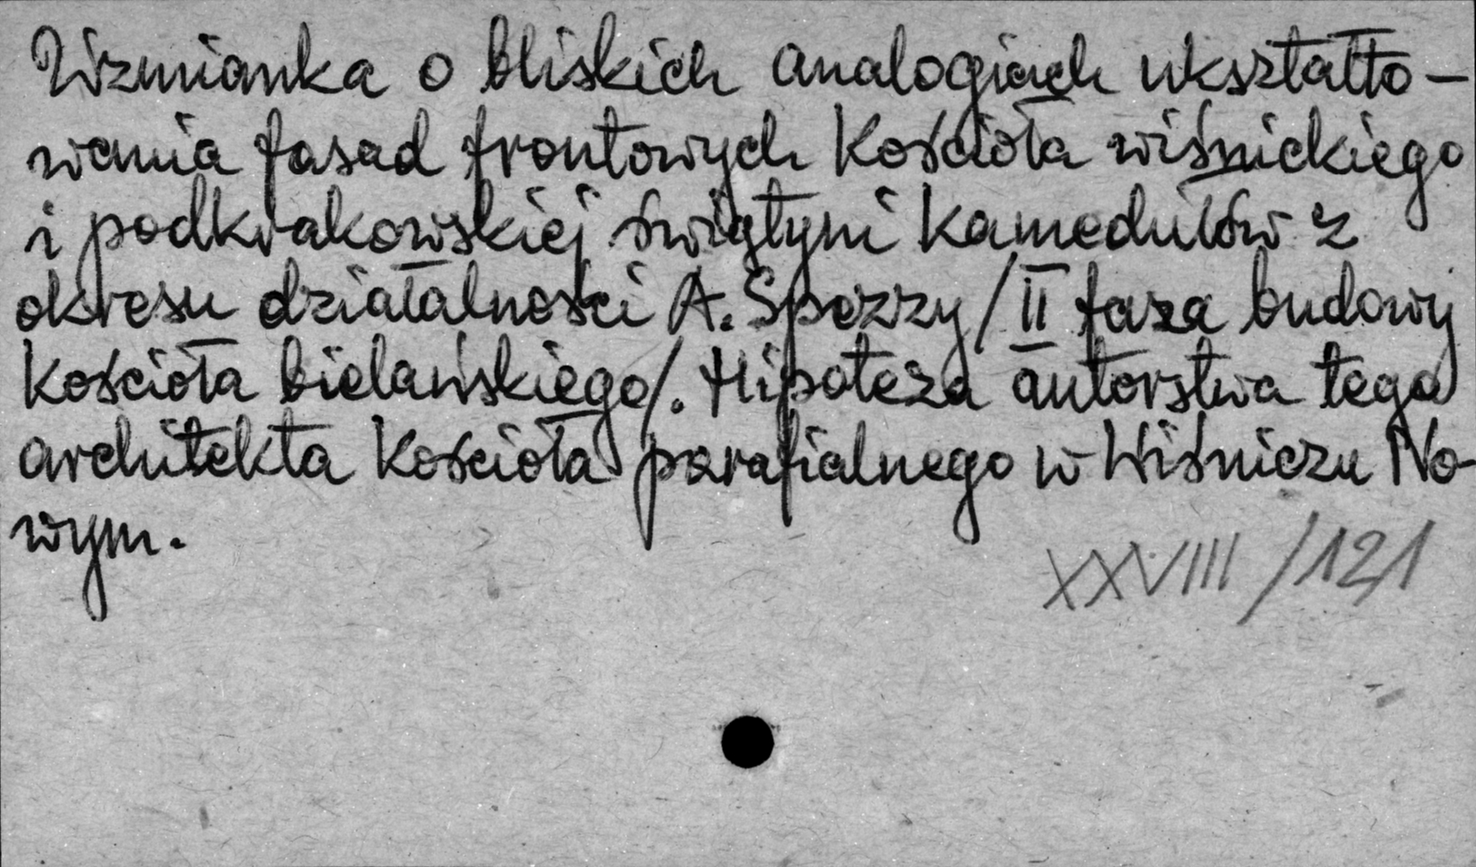 Wzmianka o bliskich analogiach ukształto-
wania fasad frontowych Kościoła wiśnickiego
i podkrakowskiej świątyni Kamedułów z
okresu działalności A. Spezzy/II faza budowy
Kościoła bielańskiego/. Hipoteza autorstwa tego
architekta Kościoła parafialnego w Wiśniczu No-
wym.
XXVIII/121